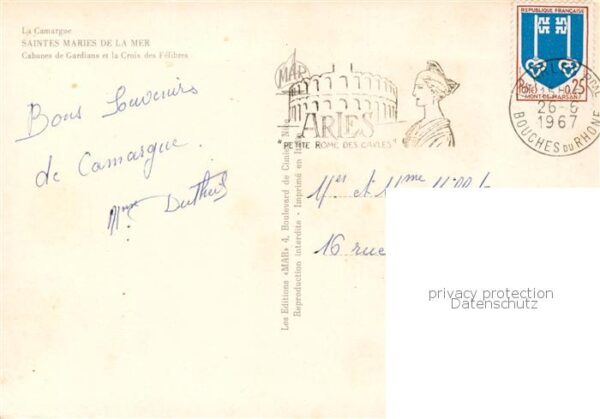 La Camargue
SAINTES MARIES DE LA MER
Cabanes de Gardians et la Croix des Félibres
Bons Souvenirs
de Camargue.
Mme
MAR
ARLES
"PETITE ROME DES GAULES"
REPUBLIQUE FRANÇAISE
POSTES 0,25
MONT-DE-MARSAN
26-6
1967
BOUCHES DU RHONE
Les Editions «MAR» 4, Boulevard de Cimiez, Nice
Reproduction interdite - Imprimé en
et Mme
16 rue
privacy protection
Datenschutz